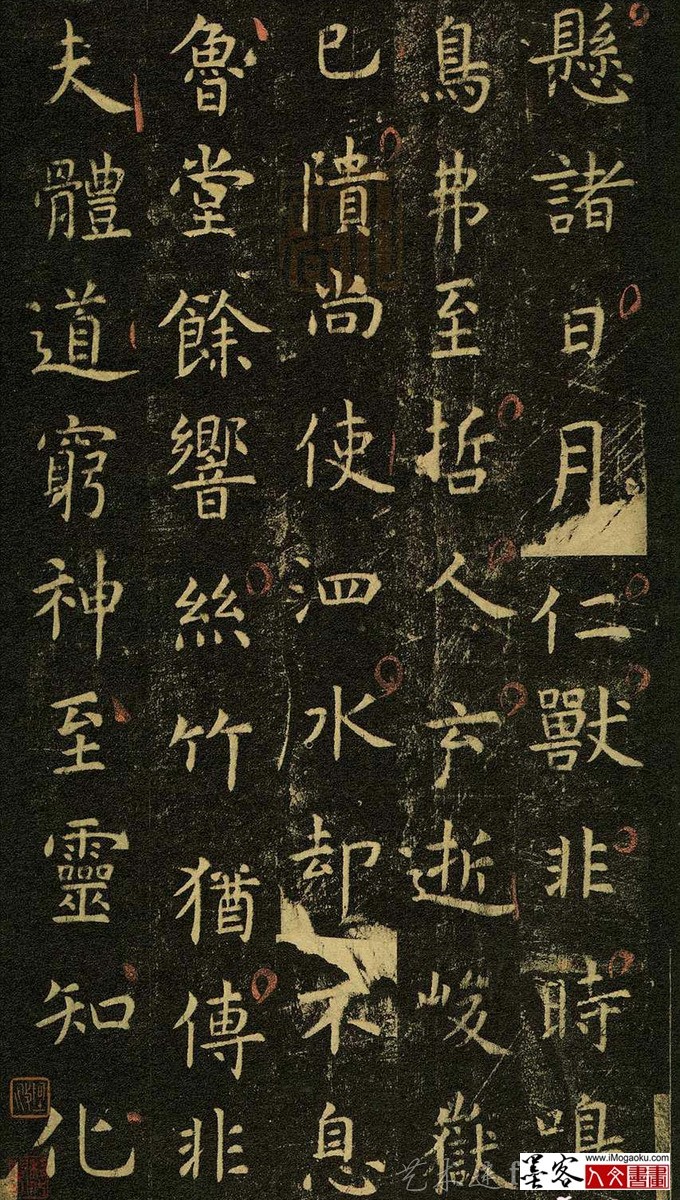 懸諸日月仁獸非時鳴
鳥弗至哲人云逝峻嶽
已隤尚使泗水却不息
魯堂餘響絲竹猶傳非
夫體道窮神至靈知化
www.iMogaoku.com
墨客
人文書畫